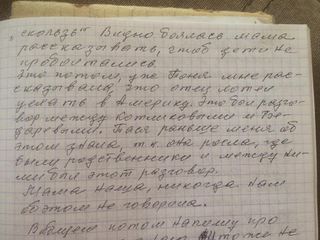 скользь" Видно боялась мама
рассказывать, чтоб дети не
проболтались.
Это потом, уже Тася мне рас-
сказывала, что отец хотел
уехать в Америку. Это был разго-
вор между Котликовыми и
даревыми. Тася раньше меня об
этом знала, т.к. она росла, где
были родственники и между ни-
ми был этот разговор.
Мама наша, никогда нам
об этом не говорила.
потом напишу про
тоже не